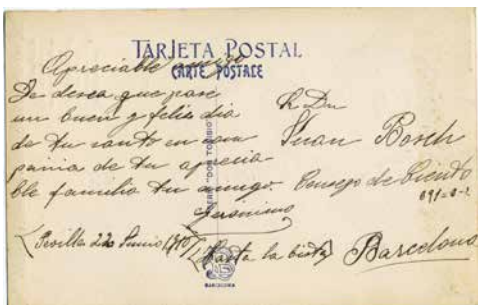 TARJETA POSTAL
CARTE POSTALE
Apreciable amigo
Te desea que pase
un buen y felis dia
de tu santo en com
pania de tu aprecia
ble familia tu amigo.
Jeronimo
Sevilla 22 Junio 1910
Hasta la bista
Dn
Juan Bosch
Consejo de Ciento
Barcelona
BARCELONA